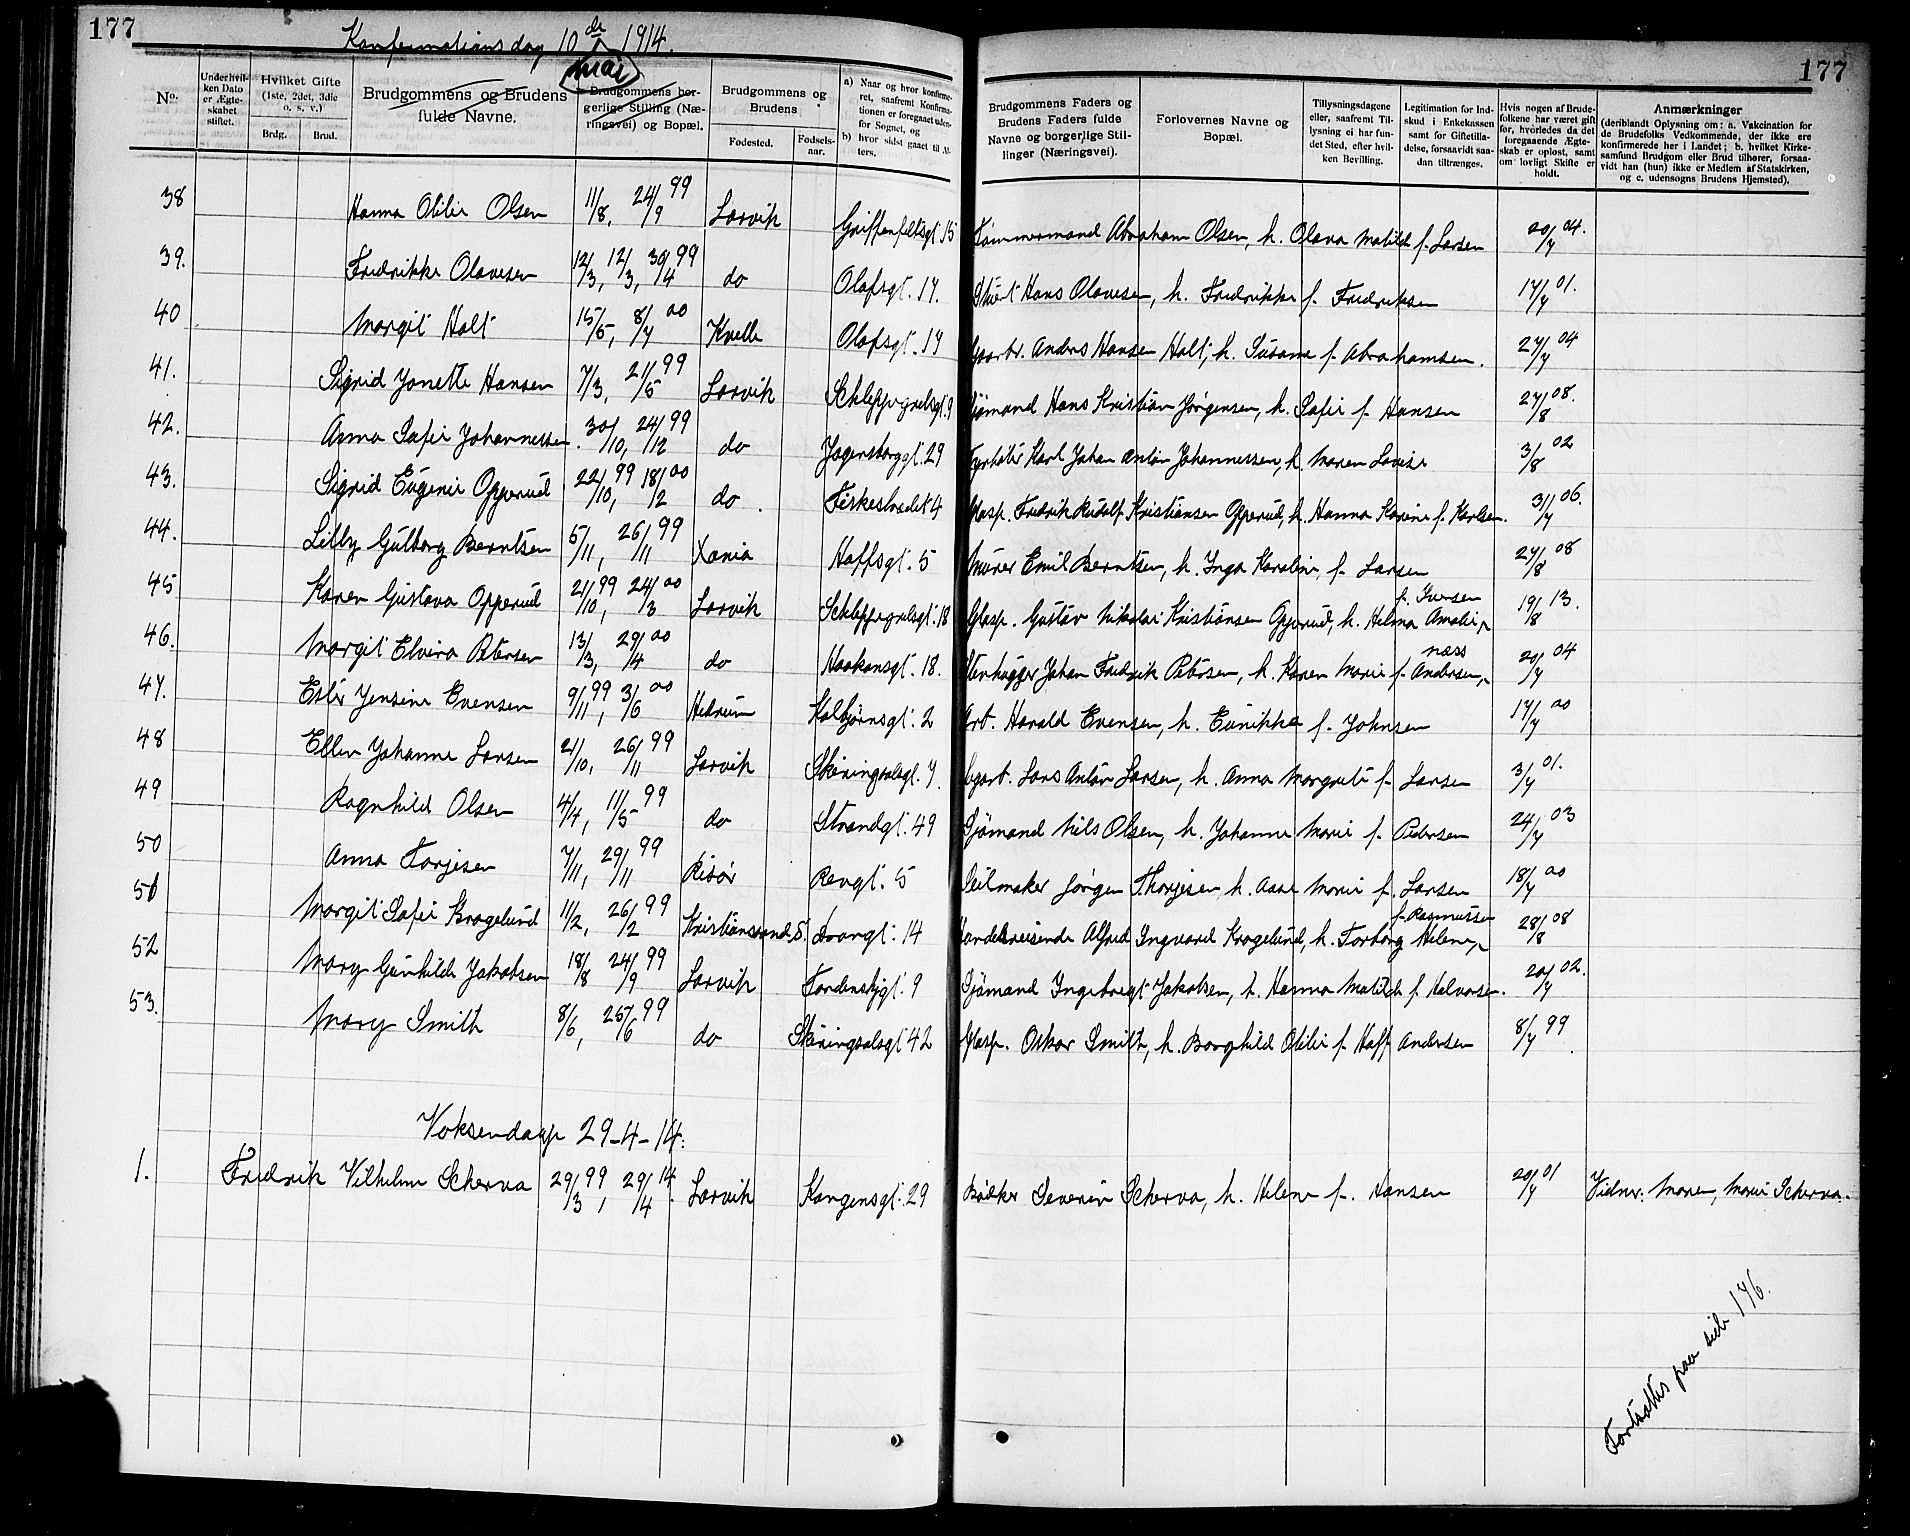 177
Konfirmationsdag 10de mai 1914.
177
No.
Underhvilken Dato er Ægteskabet stiftet.
Hvilket Gifte (1ste, 2det, 3die o. s. v.)
Brdg. Brud.
Brudgommens og Brudens fulde Navne.
Brudgommens borgerlige Stilling (Næringsvei) og Bopæl.
Brudgommens og Brudens
Fødested. Fødselsaar.
a) Naar og hvor konfirmeret, saafremt Konfirmationen er foregaaet udenfor Sognet, og b) hvor sidst gaaet til Alters.
Brudgommens Faders og Brudens Faders fulde Navne og borgerlige Stillinger (Næringsvei).
Forlovernes Navne og Bopæl.
Tillysningsdagene eller, saafremt Tillysning ei har fundet Sted, efter hvilken Bevilling.
Legitimation for Indskud i Enkekassen samt for Giftetilladelse, forsaavidt saadan tiltrænges.
Hvis nogen af Brudefolkene har været gift før, hvorledes da det foregaaende Ægteskab er opløst, samt om lovligt Skifte er holdt.
Anmærkninger (deriblandt Oplysning om: a. Vakcination for de Brudefolks Vedkommende, der ikke ere konfirmerede her i Landet; b. hvilket Kirkesamfund Brudgom eller Brud tilhører, forsaavidt han (hun) ikke er Medlem af Statskirken, og c. udensogns Brudens Hjemsted).
38 Hanna Otilie Olsen 11/8, 24/9 99 Larvik Griffenfeltsgt. 15 Tømmermand Abraham Olsen, h. Olava Matilde f. Larsen 20/7 04.
39. Fredrikke Olavesen 12/3, 12/3, 30/4 99 do Olafsgt. 17. Hans Olavesen, h. Fredrikke f. Fredriksen 17/7 01.
40 Margit Holt 15/5, 8/7 00 Kvelle Olafsgt. 17 Gaarbr. Anders Hansen Holt, h. Susane f. Abrahamsen. 27/7 04
41. Sigrid Jonette Hansen 7/3, 21/5 99 Larvik Schleppegrelsgt. 9 Sjømand Hans Kristian Jørgensen, h. Sofie f. Hansen 27/8 08.
42. Anna Sofie Johannessen. 30/10, 24/12 99 do Jegersborggt. 29 Fyrbøter Karl Johan Anton Johannessen, h. Maren Lovise 3/8 02
43. Sigrid Eugenie Opperud 22/10 99, 18/2 00 do. Firkesbradet 4 Glasp. Fredrik Rudolf Kristiansen Opperud, h. Hanna Karine f. Karlsen. 31/7 06.
44. Lilly Gulborg Berntsen 5/11, 26/11 99 Xania Hoffsgt. 5 Murer Emil Berntsen, h. Inga Karoline, f. Larsen 27/8 08
45 Karen Gustava Opperud 21/10 99, 24/3 00 Larvik Schleppegrelsgt. 18 Glasp. Gustav Nikolai Kristiansen Opperud, h. Helma Amalie, f. Iversen 19/8 13.
46. Margit Elvira Petersen 13/3, 29/4 00 do Haakonsgt. 18. Stenhugger Johan Fredrik Petersen, h. Karen Marie f. Andersen, næss 20/7 04
47. Ester Jensine Evensen 9/11 99, 3/6 00 Hedrum Kolbjørnsgt. 2 Arb. Harald Evensen, h. Eunikke f. Johnsen 17/7 00
48 Ellen Johanne Larsen 21/10, 26/11 99 Larvik Skiringssalsgt. 7. Lars Anton Larsen, h. Anna Margrete f. Larsen 3/7 01.
49 Ragnhild Olsen 4/4, 11/5 99 do Strandgt. 49 Sjømand Nils Olsen, h. Johanne Marie f. Pedersen 24/7 03
50 Anna Torjesen 7/11, 29/11 99 Risør Revgt. 5 Seilmaker Jørgen Thorjesen h. Aase Marie f. Larsen 18/7 00
51 Margit Sofie Kragelund 11/2, 26/2 99 Kristianssand S. Trangt. 14 Handelsreisende Alfred Ingvard Kragelund, h. Torborg Helene, f. Rasmussen 28/8 08
52 Mary Gunhilde Jakobsen 18/8, 24/9 99 Larvik Tordenskjgt. 9 Sjømand Ingebregt Jakobsen, h. Hanna Matilde f. Halvorsen. 20/7 02.
53. Mary Smith 8/6, 25/6 99 do Skiringssalsgt 42 Glasp. Oskar Smith, h. Borghild Otilie f. Hoff Andersen 8/7 99
Voksendaap 29-4-14.
1. Fredrik Vilhelm Scherva 29/3 99, 29/4 14. Larvik Kongensgt. 29 Bødker Severin Scherva, h. Helene f. Hansen 20/7 01 Vidner: Maren, Marie Scherva.
Fortsættes paa side 176.